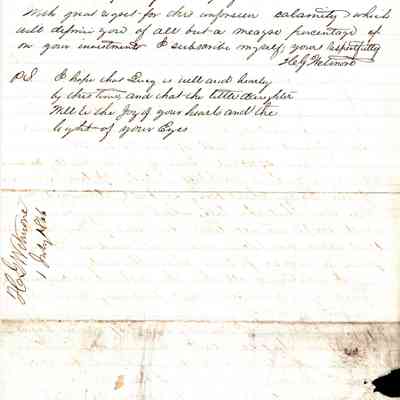 With great regret for this unforeseen calamity which
will deprive you of all but a meager percentage of
on your investment I subscribe myself, yours Respectfully
H G Wetmore
PS I hope that Lucy is well and hearty
by this time, and that the little daughter
Will be the Joy of your hearts and the
light of your Eyes
H G Wetmore
1 July